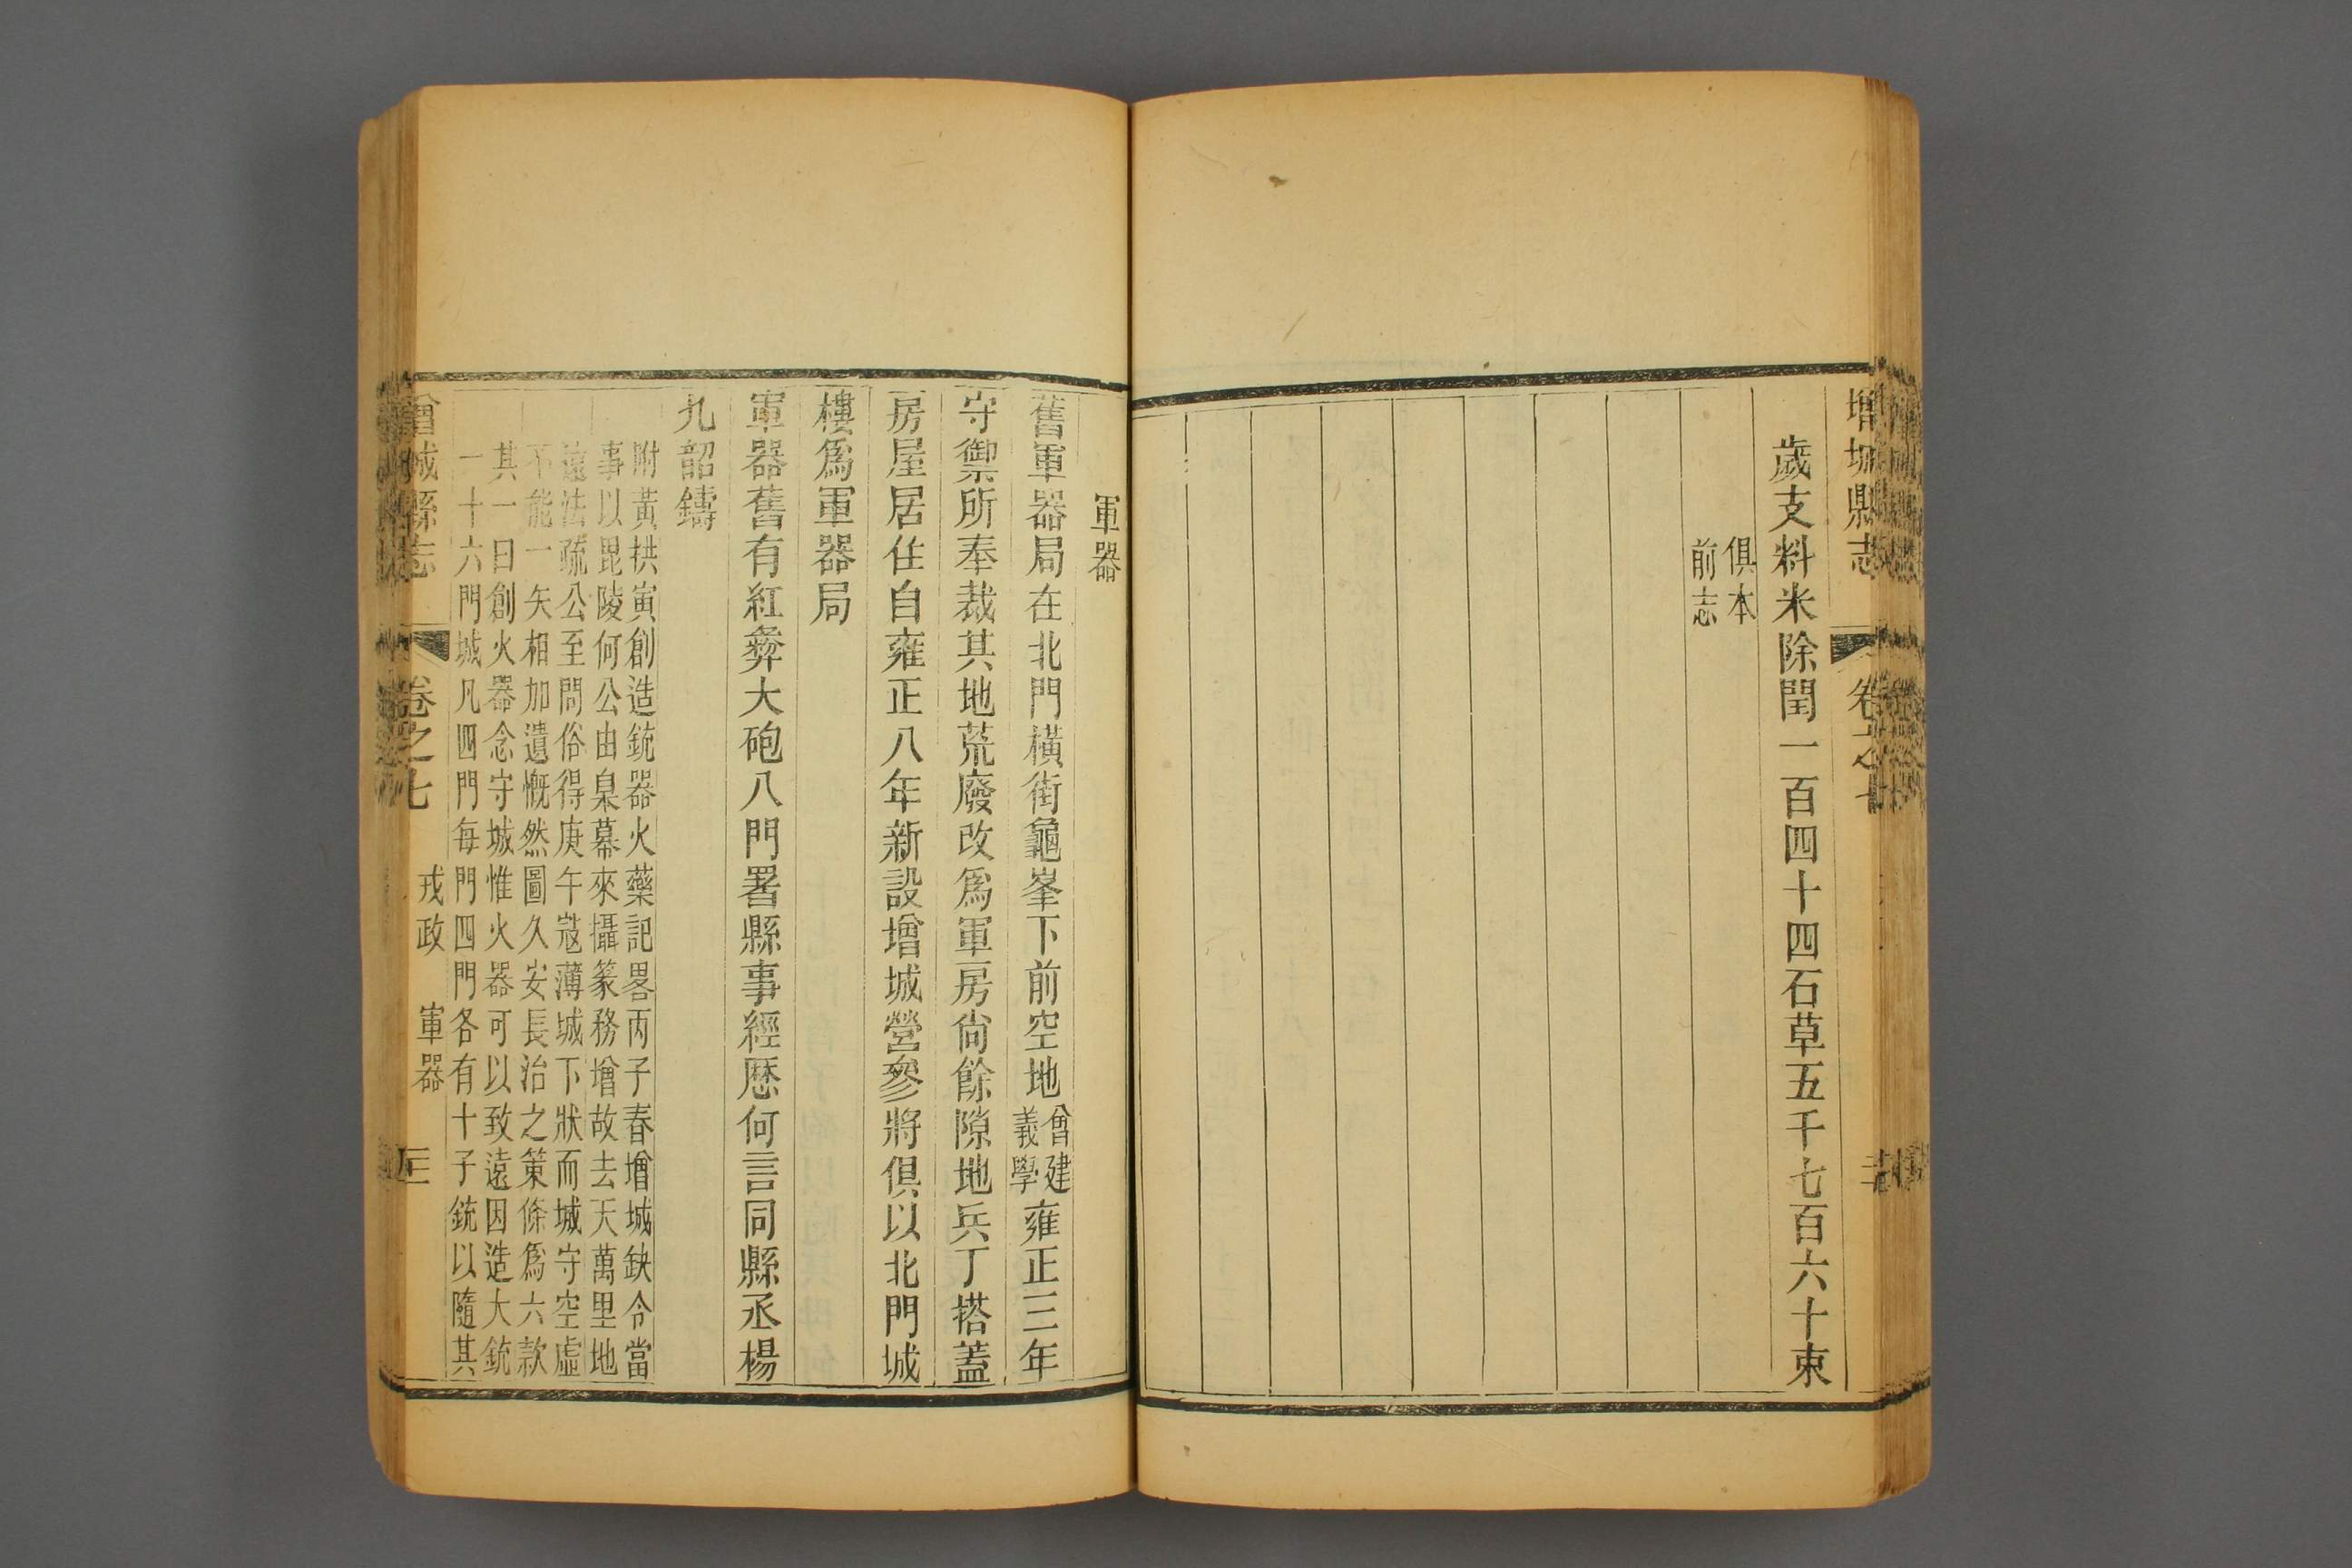 增城縣志
卷之七
歲支料米除閏一百四十四石草五千七百六十束
俱本
前志
軍器
舊軍器局在北門橫街龜峯下前空地曾建義學雍正三年
守禦所奉裁其地荒廢改爲軍房尙餘隙地兵丁搭蓋
房屋居住自雍正八年新設增城營參將俱以北門城
樓爲軍器局
軍器舊有紅彝大砲八門署縣事經歷何言同縣丞楊
九韶鑄
附黃拱寅創造銃器火藥記畧丙子春增城缺令當
事以毘陵何公由臬幕來攝篆務增故去天萬里地
遠法疏公至問俗得庚午寇薄城下狀而城守空虛
不能一矢相加遺慨然圖久安長治之策條爲六款
其一曰創火器念守城惟火器可以致遠因造大銃
一十六門城凡四門每門四門各有十子銃以隨其
曾城縣志
卷之七
戎政
軍器